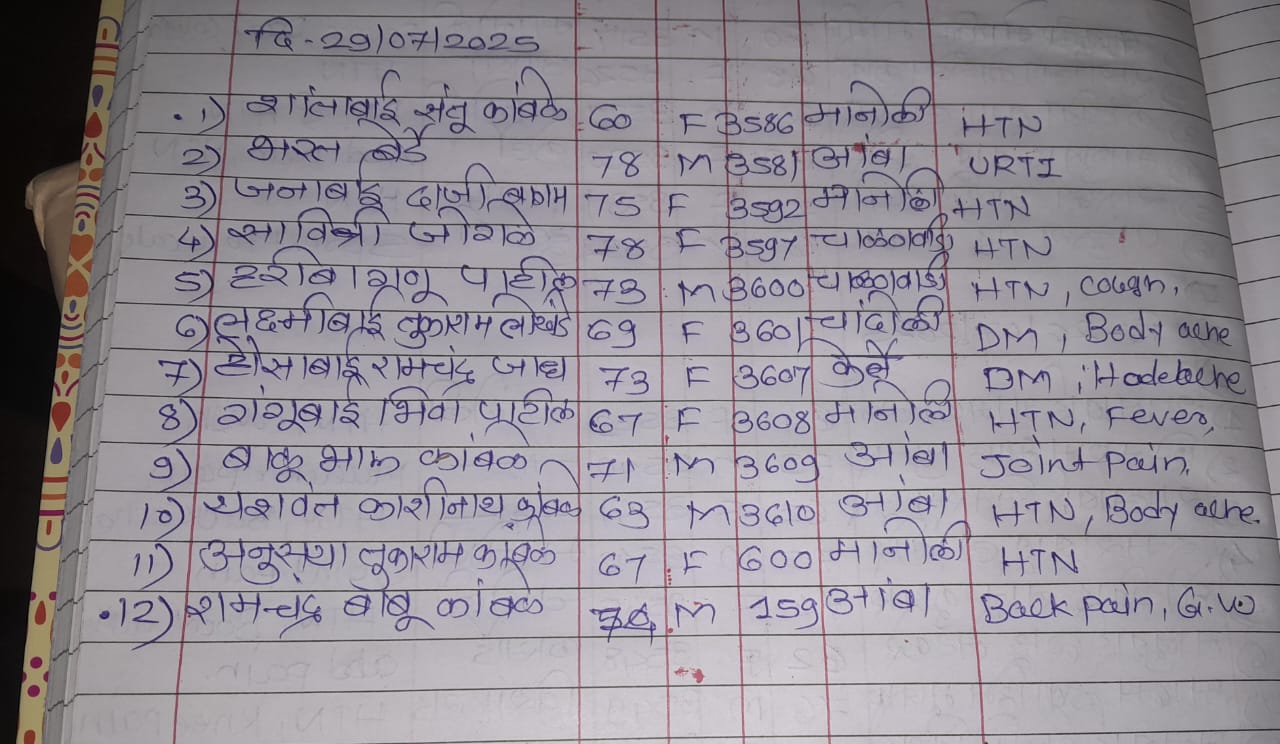 दि-29/07/2025
1) शांताबाई संतू कांबळे 60 F 3586 मानोली HTN
2) भरत बेर्डे 78 M 3581 आंबा URTI
3) जनाबाई दाजी 75 F 3592 मानोली HTN
4) सावित्री जोशीले 78 F 3597 चाळणवाडी HTN
5) हरीबा राणू पाटील 73 M 3600 चाळणवाडी HTN, Cough,
6) लक्ष्मीबाई तुकाराम लोखंडे 69 F 3601 चांदोली DM, Body ache
7) हौसाबाई रामचंद्र जाधव 73 F 3607 केर्ले DM, Hadebche
8) गंगूबाई भिवा पाटील 67 F 3608 मानोली HTN, Fever,
9) बाळू कांबळे 71 M 3609 आंबा Joint pain.
10) यशवंत काशीनाथ कांबळे 63 M 3610 आंबा HTN, Body ache.
11) अनुसया तुकाराम कांबळे 67 F 600 मानोली HTN
12) रामचंद्र बाबू कांबळे M 159 आंबा Back pain,